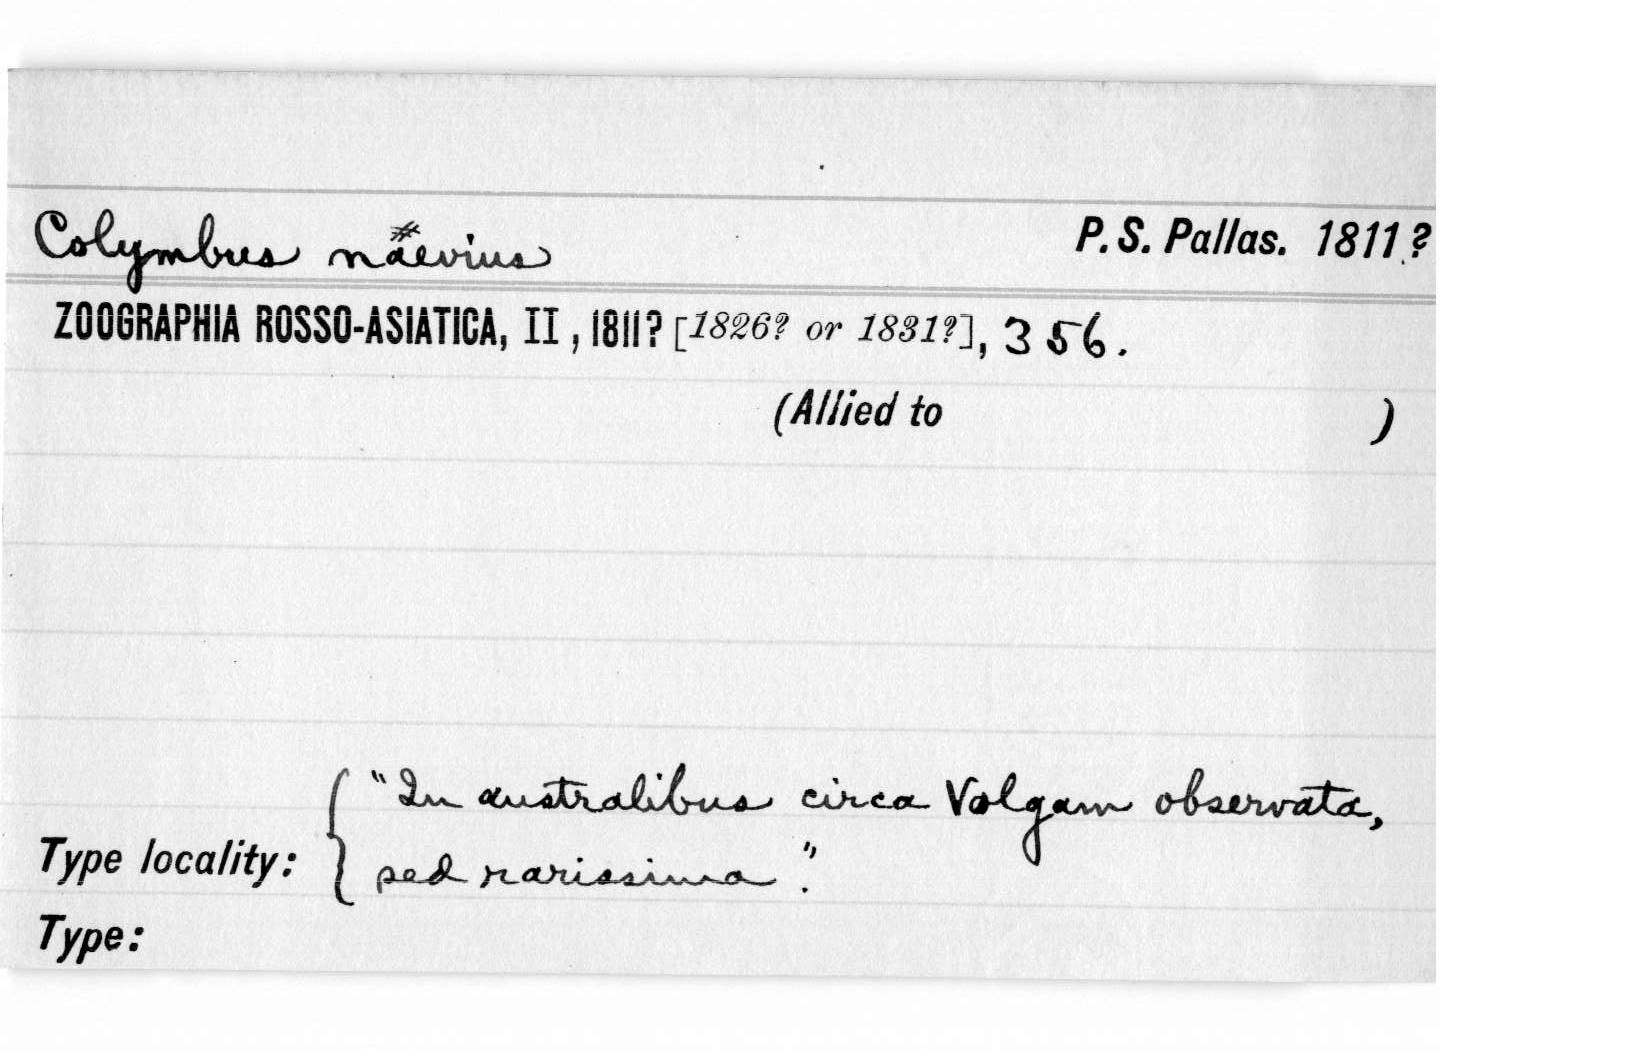 Colymbus naevius P. S. Pallas. 1811?
ZOOGRAPHIA ROSSO-ASIATICA, II, 1811? [1826? or 1831?], 356.
(Allied to )
"In australibus circa Volgam observata,
Type locality: sed rarissima."
Type: